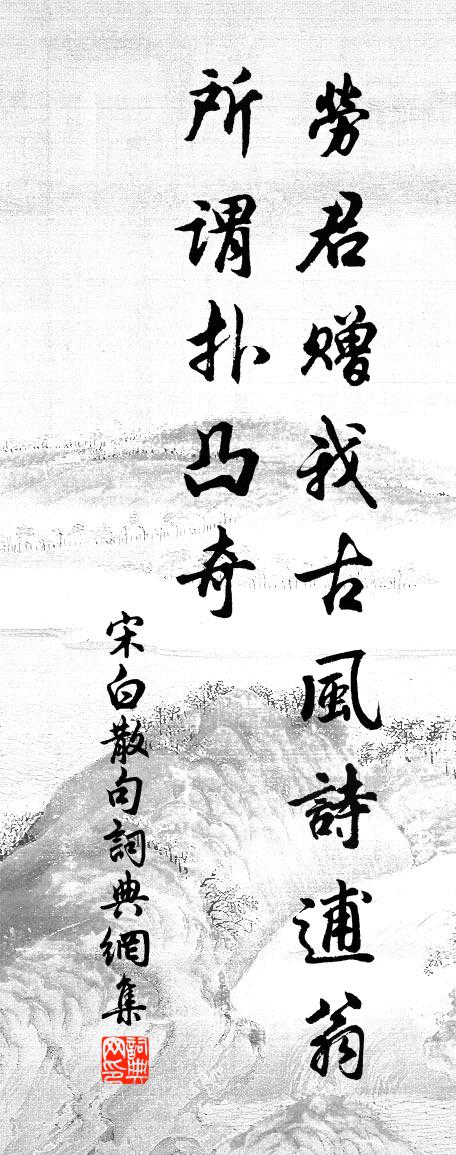 勞君贈我古風詩逋翁
所謂扑凸奇
宋白散句詞典網集
詞典网印